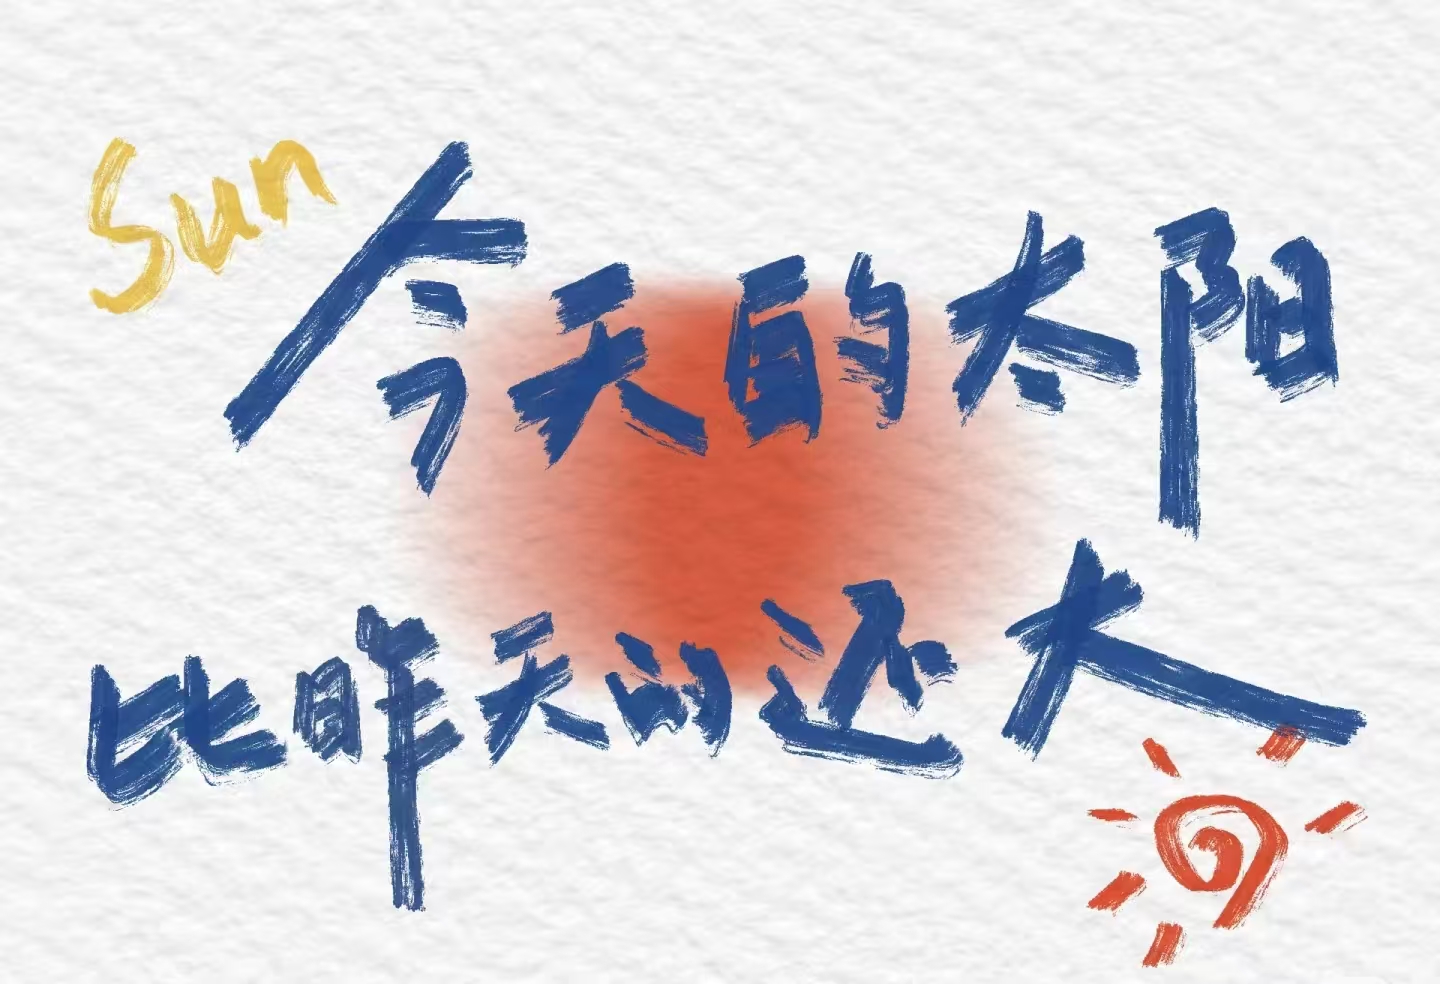 Sun
今天的太阳
比昨天的还大